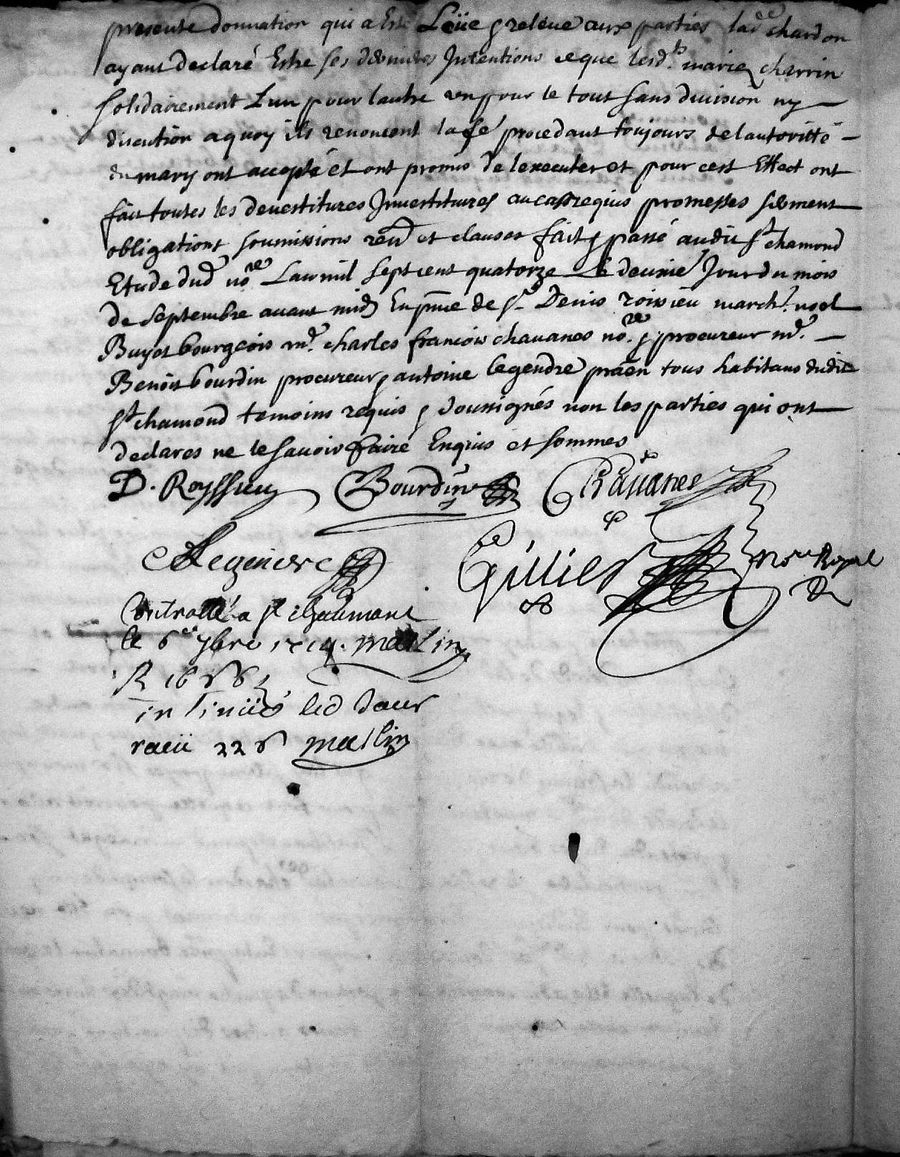 presente donnation qui a Esté Leüe & releue aux parties lad.e chardon
ayant declaré Estre ses dernieres Intentions ce que lesd.ts mariez charrin
solidairement L'un pour lautre un pour le tout sans diuision ny
discution a quoy ils renoncent la fē procedant toujours de lautoritté
du mary ont accepté et ont promis de lexecuter et pour cest Effect ont
fait toutes les deuestitures Inuestitures au cas requis promesses serment
obligations soumissions ren.on et clauses fait & passé audit S.t chamond
Etude dud no.re Lan mil sept cent quatorze Le jour du mois
de septembre auant midy En pnce de S.r Denis roissieu march.d noel
Buyet bourgeois m.e charles francois chauanes no.re & procureur m.e
Benoit bourdin procureur & antoine legendre praēn tous habitans dudit
S.t chamond temoins requis & soussignés non les parties qui ont
declarés ne le sauoir faire Enquis et sommes
D. Royssieu Bourdin Chauanes
Legendre no.re Royal
a S.t chaumont
le 6.e 7bre 1714. matlin
R 16
insinué led jour
receu 22 s matlin